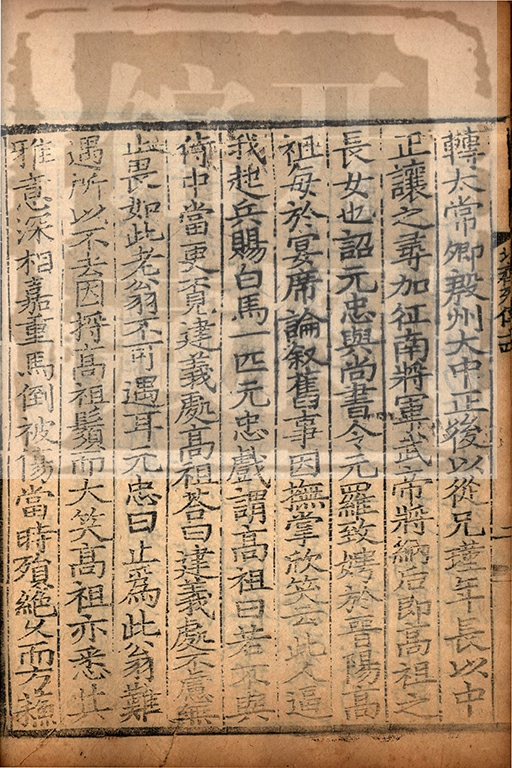 轉太常卿殷州大中正後以從兄瑾年長以中
正讓之尋加征南將軍武帝將納后即高祖之
長女也詔元忠與尚書令元羅致娉於晉陽高
祖每於宴席論叙舊事因撫掌欣笑云此人逼
我起兵賜白馬一匹元忠戲謂高祖曰若不與
侍中當更覓建義處高祖荅曰建義處不慮無
止畏如此老翁不可遇耳元忠曰止爲此翁難
遇所以不去因捋高祖鬚而大笑高祖亦悉其
雅意深相嘉重馬倒被傷當時殞絕久而方穌